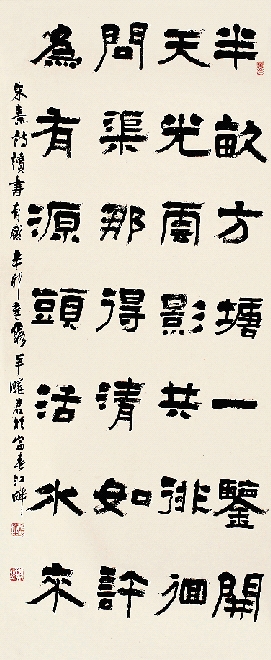 半畝方塘一鑒開
天光雲影共徘徊
問渠那得清如許
爲有源頭活水來
朱熹詩讀書有感 辛卯 羊曉君於富春江畔